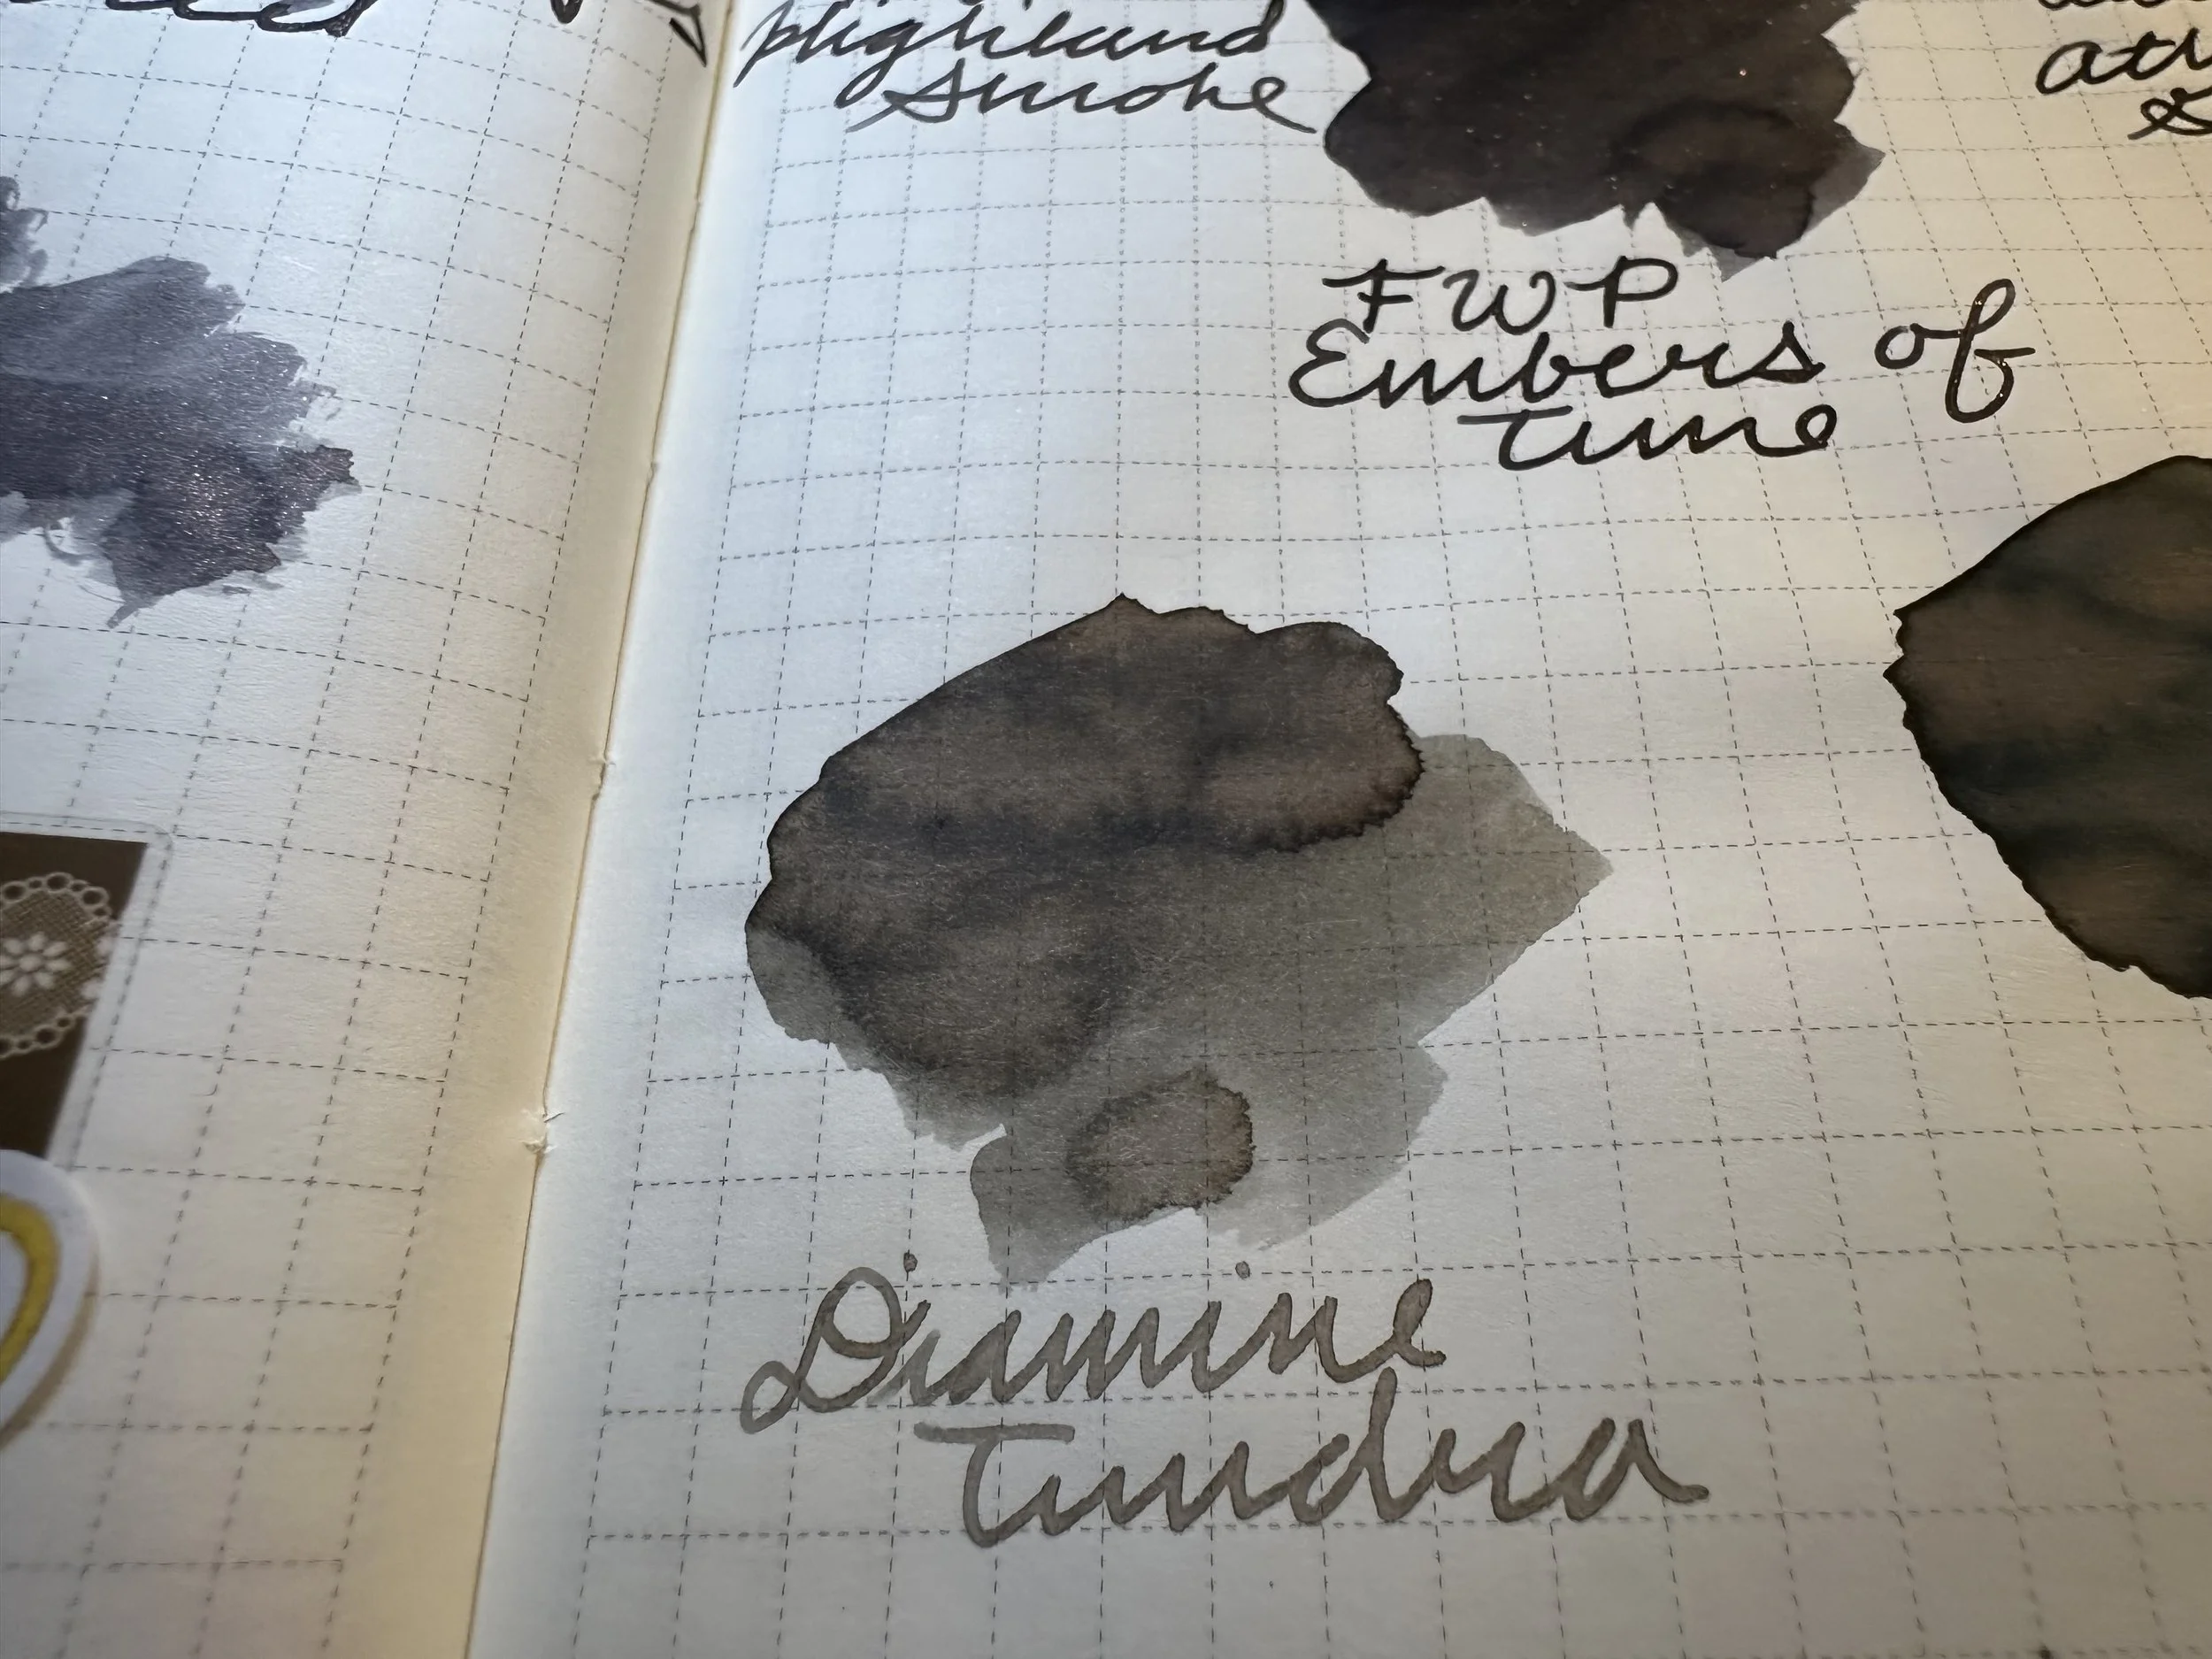 Highland
Smoke
FWP
Embers of
Time
Diamine
Tundra